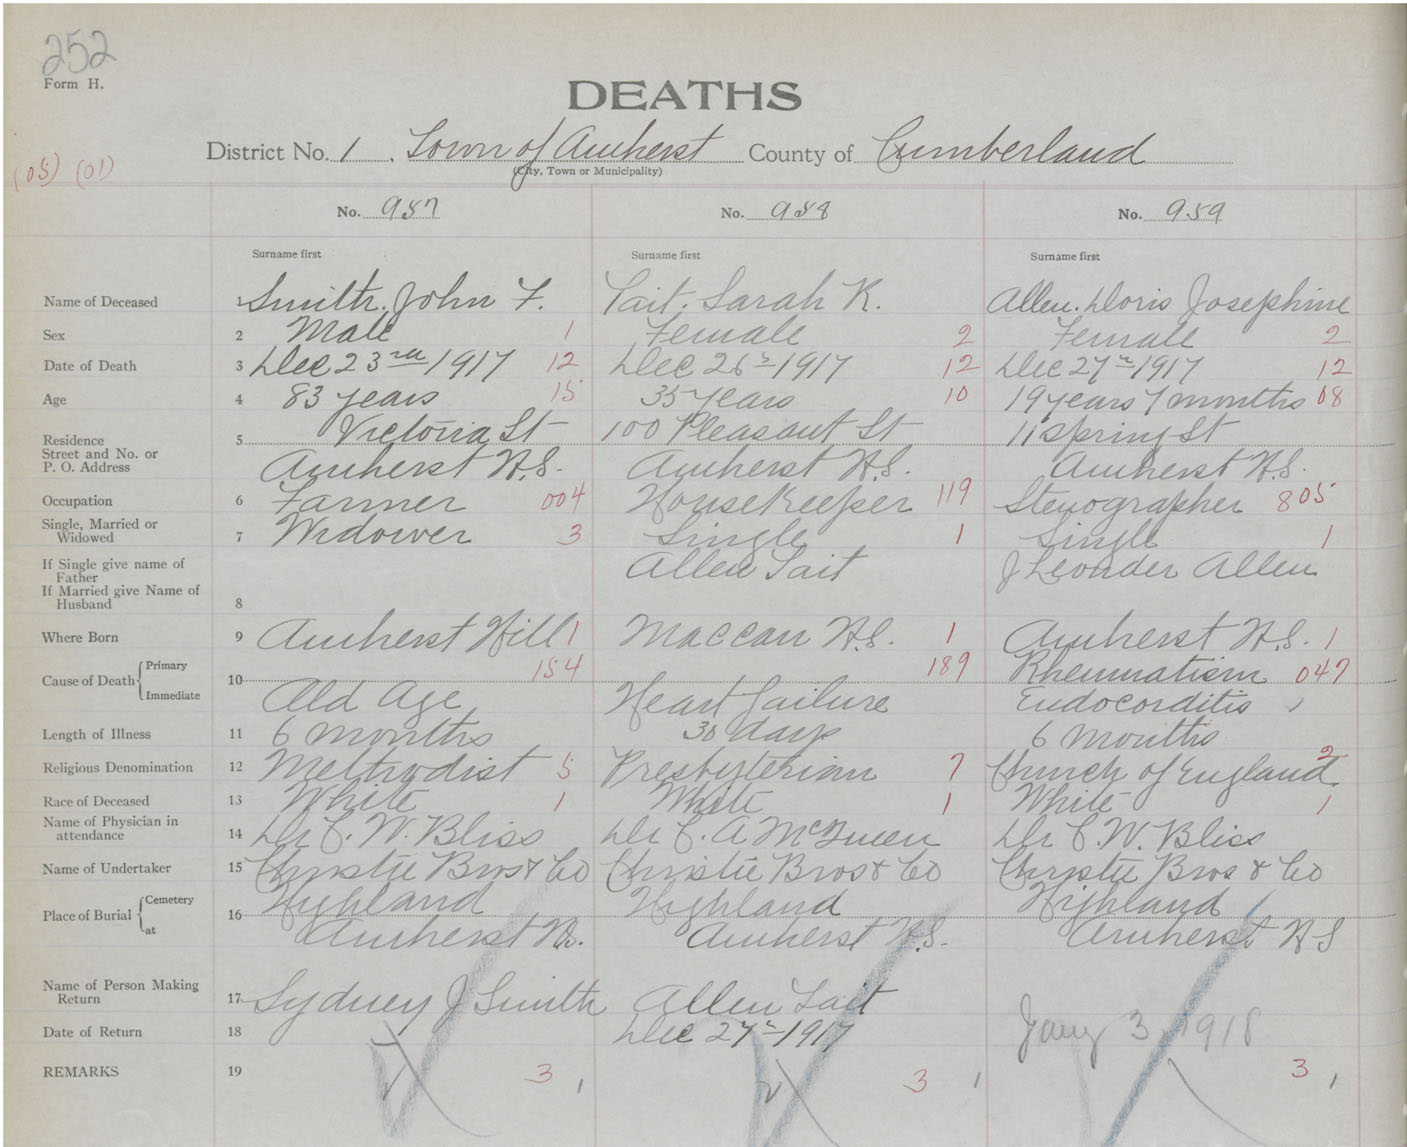 252
Form H.
DEATHS
District No. 1. Town of Amherst County of Cumberland
(City, Town or Municipality)
(05) (01)
No. 957 No. 958 No. 959
Surname first Surname first Surname first
Name of Deceased 1 Smith. John F. Tait. Sarah K. Allen. Doris Josephine
Sex 2 Male 1 Female 2 Female 2
Date of Death 3 Dec 23rd 1917 12 Dec 26th 1917 12 Dec 27th 1917 12
Age 4 83 years 15 35 years 10 19 years 7 months 08
Residence 5 Victoria St 100 Pleasant St 11 Spring St
Street and No. or
P. O. Address Amherst N.S. Amherst N.S. Amherst N.S.
Occupation 6 Farmer 004 Housekeeper 119 Stenographer 805
Single, Married or
Widowed 7 Widower 3 Single 1 Single 1
If Single give name of
Father Allen Tait J Leonder Allen
If Married give Name of
Husband 8
Where Born 9 Amherst Hill 1 Maccan N.S. 1 Amherst N.S. 1
Cause of Death { Primary 10 154 189 Rheumatism 047
Immediate Old Age Heart Failure Endocorditis
Length of Illness 11 6 months 30 days 6 months
Religious Denomination 12 Methodist 5 Presbyterian 7 Church of England 2
Race of Deceased 13 White 1 White 1 White 1
Name of Physician in
attendance 14 Dr C. W. Bliss Dr C. A McQueen Dr C. W. Bliss
Name of Undertaker 15 Christie Bros & Co Christie Bros & Co Christie Bros & Co
Place of Burial { Cemetery 16 Highland Highland Highland
at Amherst N.S. Amherst N.S. Amherst N S
Name of Person Making
Return 17 Sydney J Smith Allen Tait
Date of Return 18 Dec 27th 1917 Jany 3, 1918
REMARKS 19 3 1 3 1 3 1